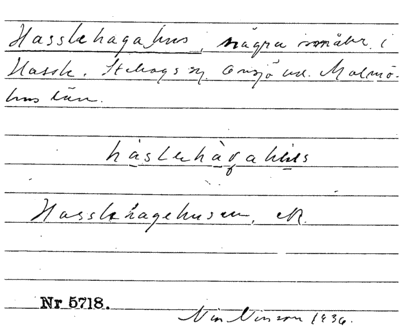 Hasslehagahus, några småhr. i
Hassle. Stehags sn. Onsjö hd. Malmö-
hus län.
hàslehàgahùs
Hasslehagehusen, ek.
Nr 5718.
Nils Ninson 1936.